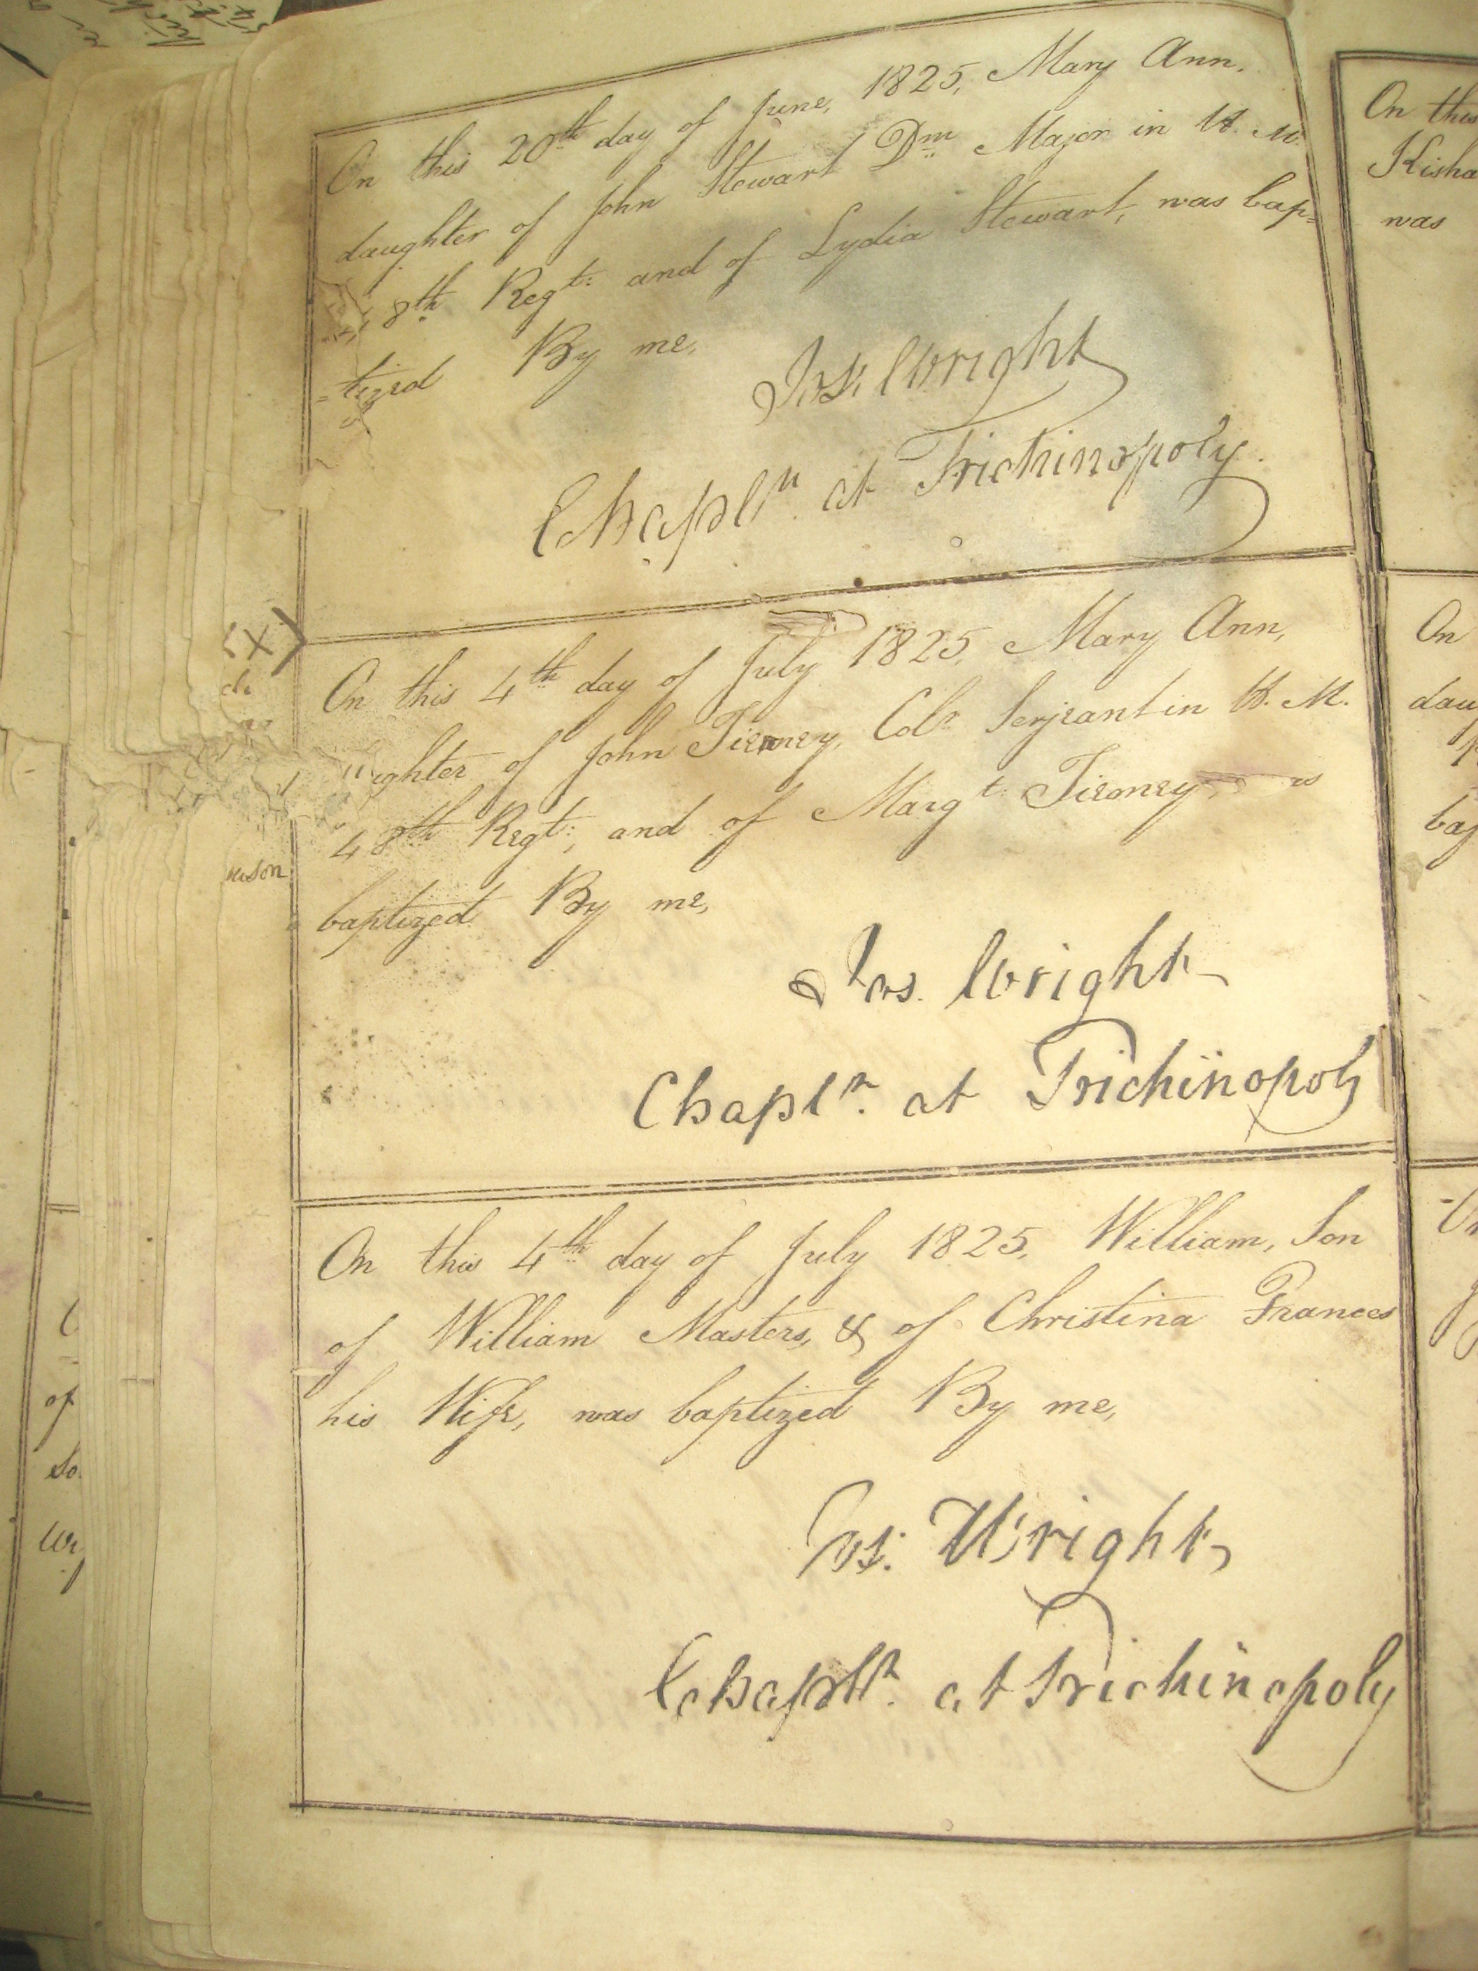 On this 20th day of June, 1825, Mary Ann,
daughter of John Stewart Drm Major in H. M.
48th Regt: and of Lydia Stewart, was bap=
=tized By me,
Jos. Wright
Chapln. at Trichinopoly.
On this 4th day of July 1825, Mary Ann,
ughter of John Tierney, Colr Serjeant in H. M.
48th Regt:, and of Margt: Tierney,
baptized By me,
Jos. Wright
Chapln. at Trichinopoly
On this 4th day of July 1825, William, Son
of William Masters, & of Christina Frances
his Wife, was baptized By me,
Jos. Wright,
Chapln. at Trichinopoly
On this
Kisha
was
On
dau
bap
of
So